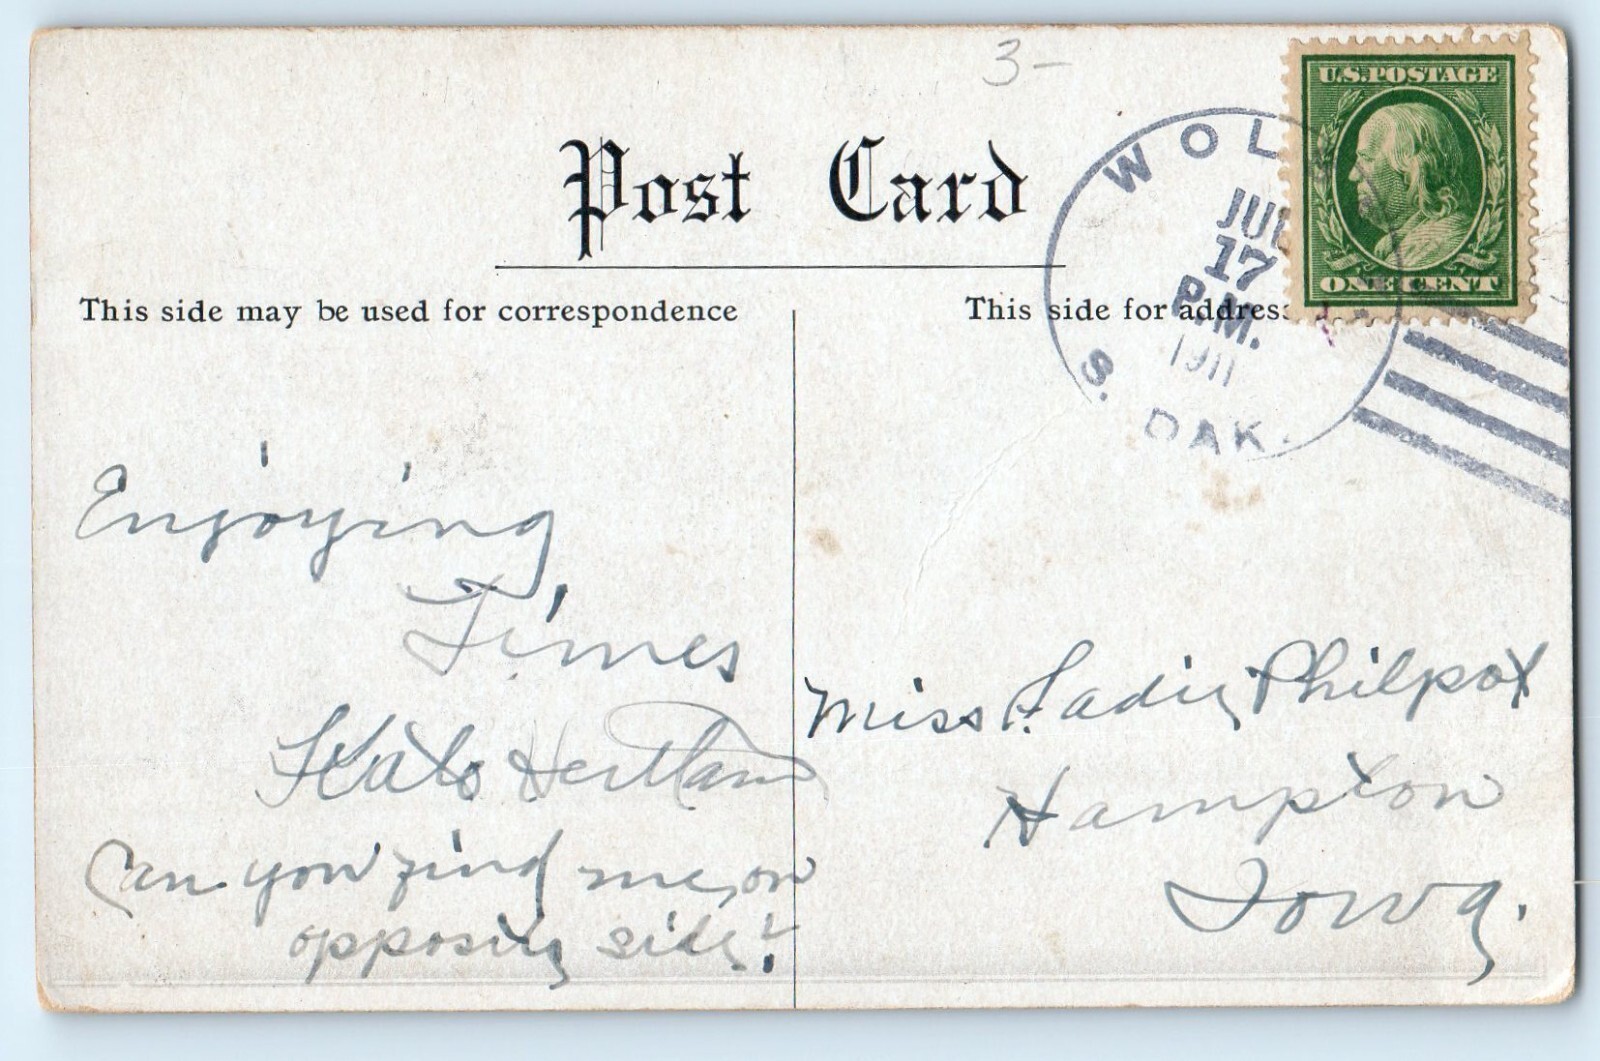 3-
Post Card
U.S.POSTAGE
ONE CENT
WOL
JUL
17
P.M.
1911
S. DAK.
This side may be used for correspondence
This side for address
Enjoying
Times
Can you find me on
opposite side?
Miss Philpot
Hampton
Iowa.